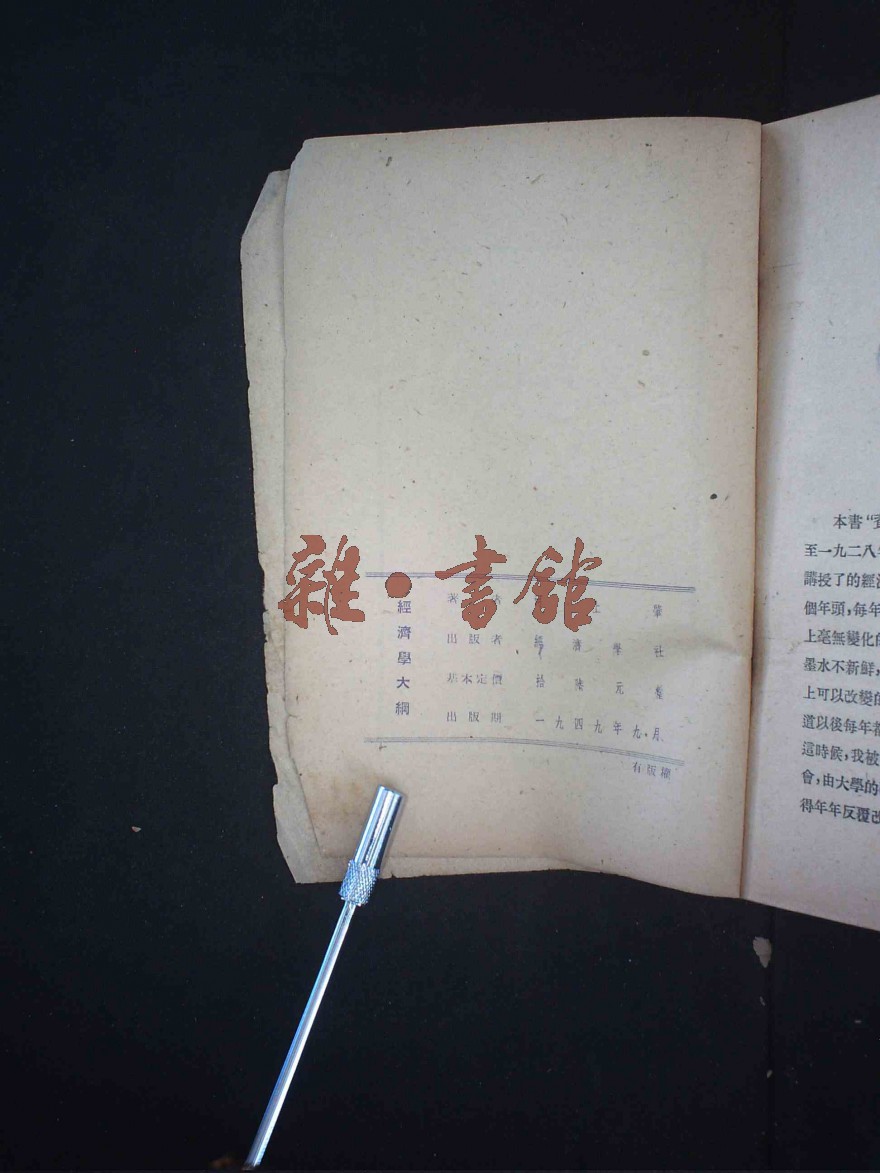 雜·書館
經濟學大綱
著 者 上 肇
出版者 經濟學社
基本定價 拾陸元整
出版期 一九四九年九月
有版權
本書“
至一九二八
講授了的經濟
個年頭，每年
上毫無變化的
墨水不新鮮，
上可以改變的
道以後每年都
這時候，我被
會，由大學的
得年年反覆改